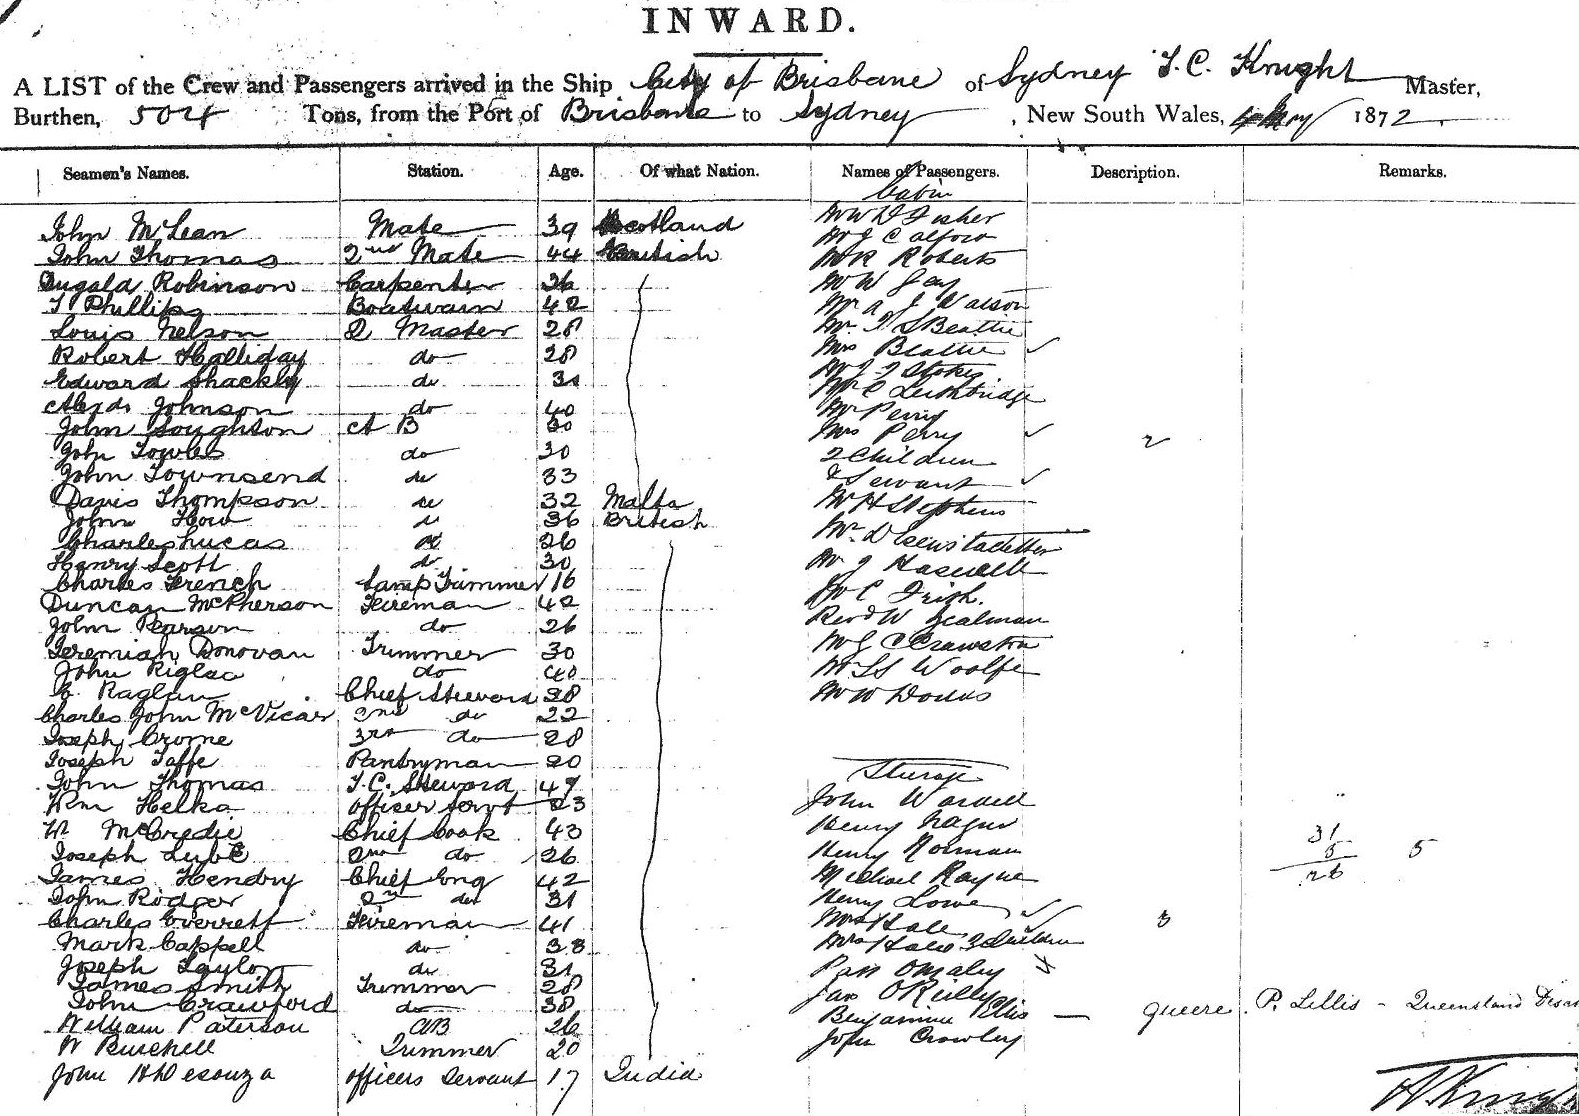 INWARD.
A LIST of the Crew and Passengers arrived in the Ship City of Brisbane of Sydney T. C. Knight Master,
Burthen, 504 Tons, from the Port of Brisbane to Sydney, New South Wales, May 1872.
Seamen's Names. Station. Age. Of what Nation. Names of Passengers. Description. Remarks.
Cabin
John McLean Mate 39 Scotland
John Thomas 2nd Mate 44 British
Dugald Robinson Carpenter 26
T Phillips Boatswain 42
Louis Nelson Q Master 28
Robert Halliday do 28
Edward Shackly do 31
Alexdr Johnson do 40
John Soughson A B 30
John Towles do 30
John Townsend do 33
Davis Thompson do 32 Malta
John How do 36 British
Charles Lucas do 26
Henry Scott do 30
Charles French Lamp Trimmer 16
Duncan McPherson Fireman 42
John Pearson do 26
Jeremiah Donovan Trimmer 30
John do 40
Raglan Chief Steward 38
Charles John McVicar 2nd do 22
Joseph Crome 3rd do 28
Joseph Taffe Pantryman 20
John Thomas Steward 47
Wm Helka officer Servt 23
W McCredie Chief Cook 43
Joseph 2nd do 26
James Hendry Chief Eng 42
John Rodger 2nd do 31
Charles Everrett Fireman 41
Mark Cappell do 38
Joseph Taylor do 31
James Smith Trimmer 28
John Crawford do 38
William Paterson AB 26
W Burchell Trimmer 20
John officers Servant 17 India
Mr W D Fisher
Mr J C
Mr R Roberts
Mr W Gay
Mr A J Watson
Mr T S Beattie
Mrs Beattie
Mr J T Stokes
Mr C Leithbridge
Mr Perry
Mrs Perry
2 Children 2
& Servant
Mr H Stephens
Mr D
Mr J Haswell
Mr C Irish.
Revd W
Mr J C Crawston
Mr Woolfe
Mr W Dodds
Sturage
John Wardell
Henry
Henry Norman 31 5 26 5
Michael Rayne
Henry Lowe
Mrs Hale 3
Mrs 3 Children
Omaley
Jas OReilly
Benjamin Ellis — queere P. Lillis - Queensland
John Crowley